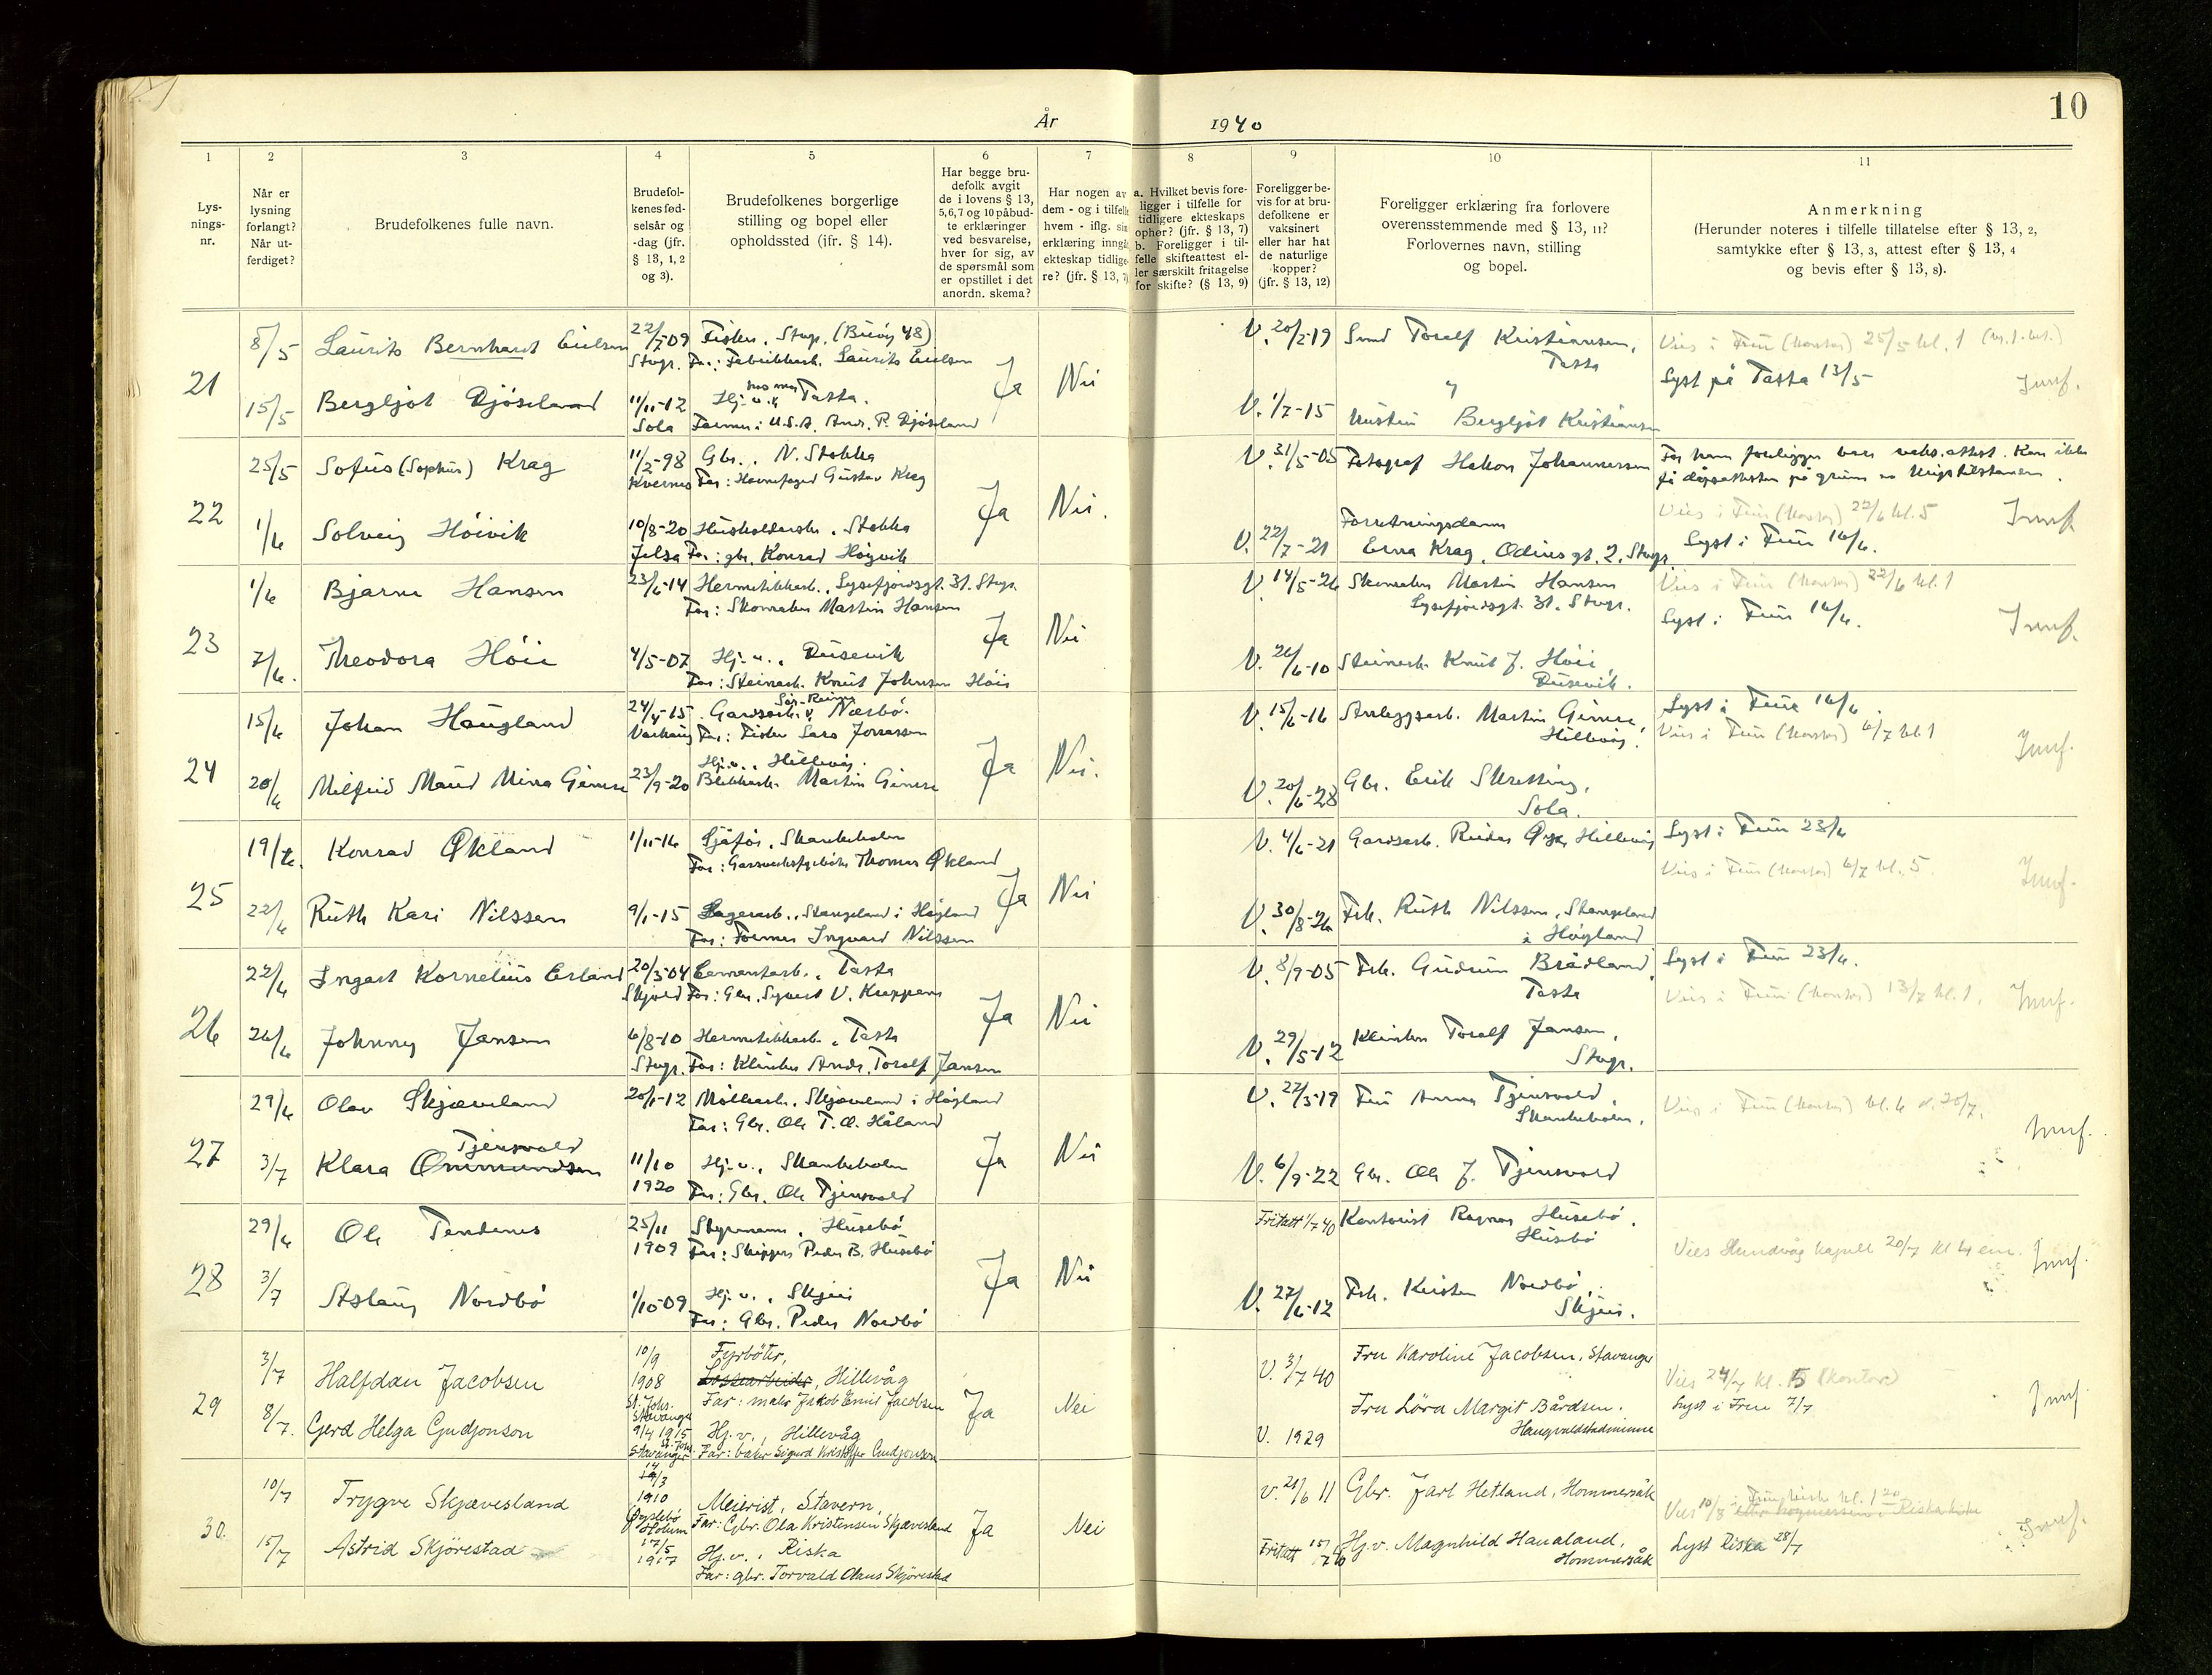 10
År 1940
1 2 3 4 5 6 7 8 9 10 11
Lysnings-
nr.
Når er
lysning
forlangt?
Når ut-
ferdiget?
Brudefolkenes fulle navn.
Brudefol-
kenes fød-
selsår og
-dag (jfr.
§ 13, 1, 2
og 3).
Brudefolkenes borgerlige
stilling og bopel eller
opholdssted (ifr. § 14).
Har begge bru-
defolk avgit
de i lovens § 13,
5,6,7 og 10 påbud-
te erklæringer
ved besvarelse,
hver for sig, av
de spørsmål som
er opstillet i det
anordn. skema?
Har nogen av
dem - og i tilfelle
hvem - iflg. sin
erklæring inngå
ekteskap tidlige-
re? (jfr. § 13, 7)
a. Hvilket bevis fore-
ligger i tilfelle for
tidligere ekteskaps
ophør? (jfr. § 13, 7)
b. Foreligger i til-
felle skifteattest el-
ler særskilt fritagelse
for skifte? (§ 13, 9)
Foreligger be-
vis for at bru-
defolkene er
vaksinert
eller har hat
de naturlige
kopper?
(jfr. § 13, 12)
Foreligger erklæring fra forlovere
overensstemmende med § 13, 11?
Forlovernes navn, stilling
og bopel.
Anmerkning
(Herunder noteres i tilfelle tillatelse efter § 13, 2,
samtykke efter § 13, 3, attest efter § 13, 4
og bevis efter § 13, 8).
21
8/5 Laurits Bernhard Eielsen 22/7-09 Fisker, Stvgr. (Buøy 48)
Stvgr. Far: Fabrikkarb. Laurits Eielsen
Ja Nei
V. 20/2-19 Smed Toralf Kristiansen,
Tasta
Vies i Frue (kontor) 25/5 kl. 1
Lyst på Tasta 13/5
15/5 Bergljot Djöseland 11/11-12 Hj. v. Tasta.
Sola Farmer i U.S.A. Andr. P. Djöseland
V. 1/7-15 Hustru Bergljot Kristiansen
22
25/5 Sofus (Sophus) Krag 11/2-98 Gbr., N. Stokka
Kvernes Far: Havnefoged Gustav Krag
Ja Nei.
V. 31/5-05 Fotograf Hakon Johannessen
For ham foreligger bare vaks. attest. Kan ikke
få dåpsattesten på grunn av krigstilstanden.
1/6 Solveig Höivik 10/8-20 Husholderske, Stokka
Jelsa Far: gbr. Konrad Höyvik
V. 22/7-21 Forretningsdame
Erna Krag, Odins gt. 2, Stvgr.
Vies i Frue (kontor) 22/6 kl. 5
Lyst i Frue 16/6.
23
1/6 Bjarne Hansen 23/6-14 Hermetikkarb., Lysefjordsgt. 31, Stvgr.
Far: Skomaker Martin Hansen
Ja Nei
V. 14/5-26 Skomaker Martin Hansen
Lysefjordsgt. 31, Stvgr.
Vies i Frue (kontor) 22/6 kl. 1
Lyst i Frue 16/6.
7/6. Theodora Höie 4/5-07 Hj. v., Dusevik
Far: Steinarb. Knut Johnsen Höie
V. 26/6-10 Steinarb. Knut J. Höie,
Dusevik.
24
15/6 Johan Haugland 24/4-15 Gardsarb., Nærbö.
Varhaug Far: Fisker Lars Jonassen
Ja Nei.
V. 15/6-16 Anleggsarb. Martin Gimre,
Hillevåg.
Lyst i Frue 16/6.
Vies i Frue (kontor) 6/7 kl. 1
20/6 Milfrid Maud Mina Gimre 23/9-20 Hj. v., Hillevåg.
Blikkarb. Martin Gimre
V. 20/6-28 Gbr. Erik Skretting,
Sola.
25
19/6. Konrad Økland 1/11-16 Sjåfør, Skankeholen
Thomas Økland
Ja Nei
V. 4/6-21 Gardsarb. Reidar Hillevåg
Lyst i Frue 23/6
Vies i Frue (kontor) 6/7 kl. 5
22/6 Ruth Kari Nilssen 9/1-15 Lagerarb., Stangeland i Høyland
Far: Farmer Ingvard Nilssen
V. 30/8-26 Frk. Ruth Nilssen, Stangeland
i Høyland
26
22/6 Ingart Kornelius Erland 20/3-04 Cementarb., Tasta
Skjold Far: Gbr. Syvert V.
Ja Nei
V. 8/9-05 Frk. Gudrun Brådland,
Tasta
Lyst i Frue 23/6.
Vies i Frue (kontor) 13/7 kl. 1.
26/6 Johnny Jansen 6/8-10 Hermetikkarb., Tasta
Stvgr. Far: Andr. Toralf Jansen
V. 29/5-12 Toralf Jansen,
Stvgr.
27
29/6 Olav Skjæveland 20/1-12 Möllearb., Skjæveland i Høyland
Far: Gbr. Ole T. O. Håland
Ja Nei
V. 22/3-19 Fru Anna Tjensvold,
Skankeholen.
Vies i Frue (kontor) kl. 6 d. 20/7.
3/7 Klara Ommundsen Tjensvold 11/10 Hj. v., Skankeholen
1920 Far: Gbr. Ole Tjensvold
V. 6/9-22 Gbr. Ole J. Tjensvold
28
29/6 Ole Tendenes 25/11 Styrmann, Husebö
1909 Far: Skipper Peder B. Husebö
Ja Nei
Fritatt 1/7 40 Kontorist Ragnar Husebö,
Husebö
Vies Hundvåg kapell 20/7 kl 4 em.
3/7 Aslaug Nordbö 1/10-09 Hj. v., Skjeie
Far: Gbr. Peder Nordbö
V. 27/6-12 Frk. Kirsten Nordbö,
Skjeie.
29
3/7 Halfdan Jacobsen 10/9 Fyrböter,
1908 Lossearbeider, Hillevåg
St. Johs. Stavanger Far: maler Jakob Emil Jacobsen
Ja Nei
V. 3/7 40 Fru Karoline Jacobsen, Stavanger
Vies 24/7 kl. 5 (kontor)
Lyst i Frue 7/7
8/7. Gerd Helga Gudjonson 9/4 1915 Hj. v., Hillevåg
Stavanger Far: baker Sigurd Kristoffer Gudjonson
V. 1929 Fru Löra Margit Bårdsen.
Haugvaldstadminne
30.
10/7 Trygve Skjævesland 14/3
1910 Meierist, Stavern
Øyslebö Holum Far: Gbr. Ola Kristensen Skjævesland
Ja Nei
V. 21/6 11 Gbr. Jarl Hetland, Hommersåk
Vies 10/8 i Frue kirke kl. 1 30
Lyst Riska 28/7
15/7 Astrid Skjörestad 17/5 1917 Hj. v., Riska
Far: gbr. Torvald Claus Skjörestad
Fritatt 15/7 40 Hj. v. Magnhild Haualand,
Hommersåk